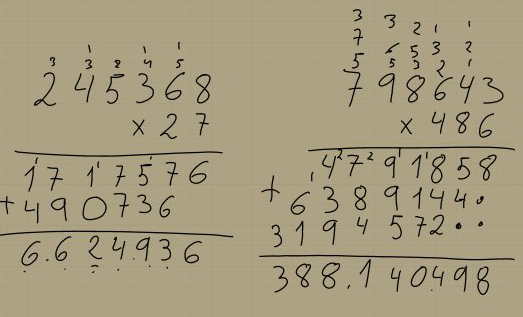 1 1 1
3 3 2 4 5
245368
x 27
1717576
+ 490736
6.624.936
3 3 2 1 1
7 6 5 3 2
5 5 3 2 1
798643
x 486
4791858
+ 6389144.
3194572..
388.140.498